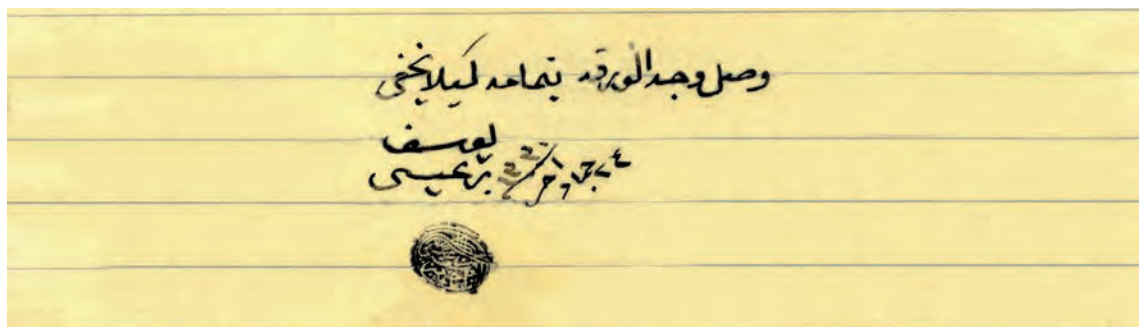 وصل وجه الورقه بتمامه كيلا يخفى
يوسف
بن عيسى